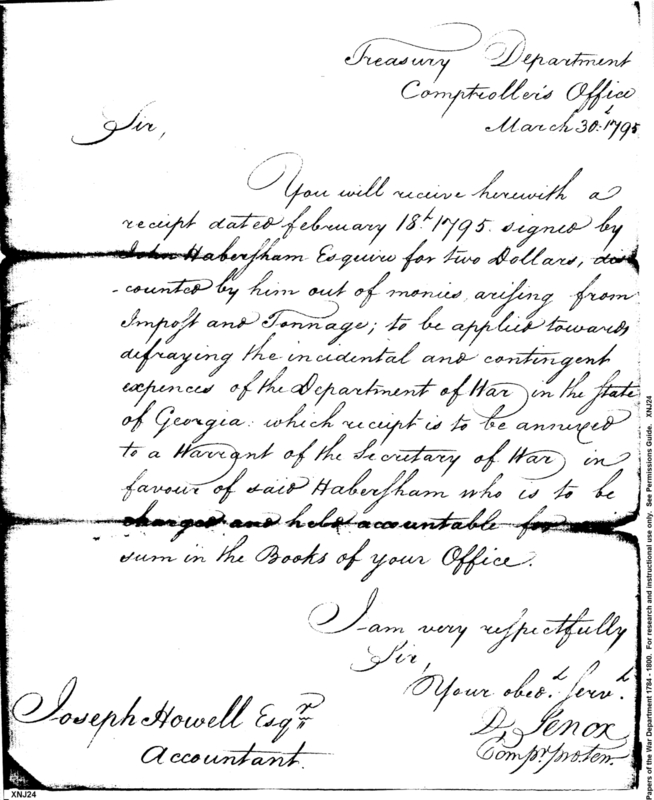 Treasury Department
Comptroller's Office
March 30.th 1795
Sir,
You will receive herewith a
receipt dated february 18.th 1795. signed by
John Habersham Esquire for two Dollars, dis
-counted by him out of monies arising from
Impost and Tonnage; to be applied towards
defraying the incidental and contingent
expences of the Department of War in the State
of Georgia: which receipt is to be annexed
to a Warrant of the Secretary of War in
favour of said Habersham who is to be
charged and held accountable for
sum in the Books of your Office.
I am very respectfully
Sir,
Your obed.t Serv.t
D. Lenox
Comp.r pro. tem.
Joseph Howell Esq.r
Accountant.
XNJ24
Papers of the War Department 1784 - 1800. For research and instructional use only. See Permissions Guide. XNJ24